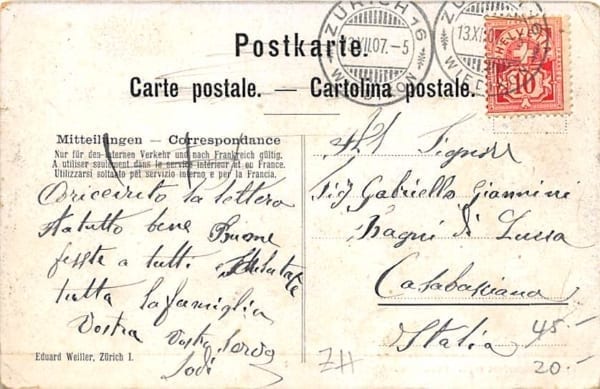 Postkarte.
Carte postale. — Cartolina postale.
ZÜRICH 16
13.XII.07.-5
WIEDIKON
ZÜRICH 16
13.XI
WIED
HELVETIA
10
Mitteilungen – Correspondance
Nur für den internen Verkehr und nach Frankreich gültig.
A utiliser seulement dans le service intérieur et en France.
Utilizzarsi soltanto pel servizio interno e per la Francia.
O riceviuto la lettera
sta tutto bene Buone
feste a tutti Salutate
tutta la famiglia
Vostra
All Signor
Sig Gabriello Giannini
Bagni di Lucca
Casabasciana
Italia
Eduard Weiller, Zürich I.
ZH
45.-
20.-